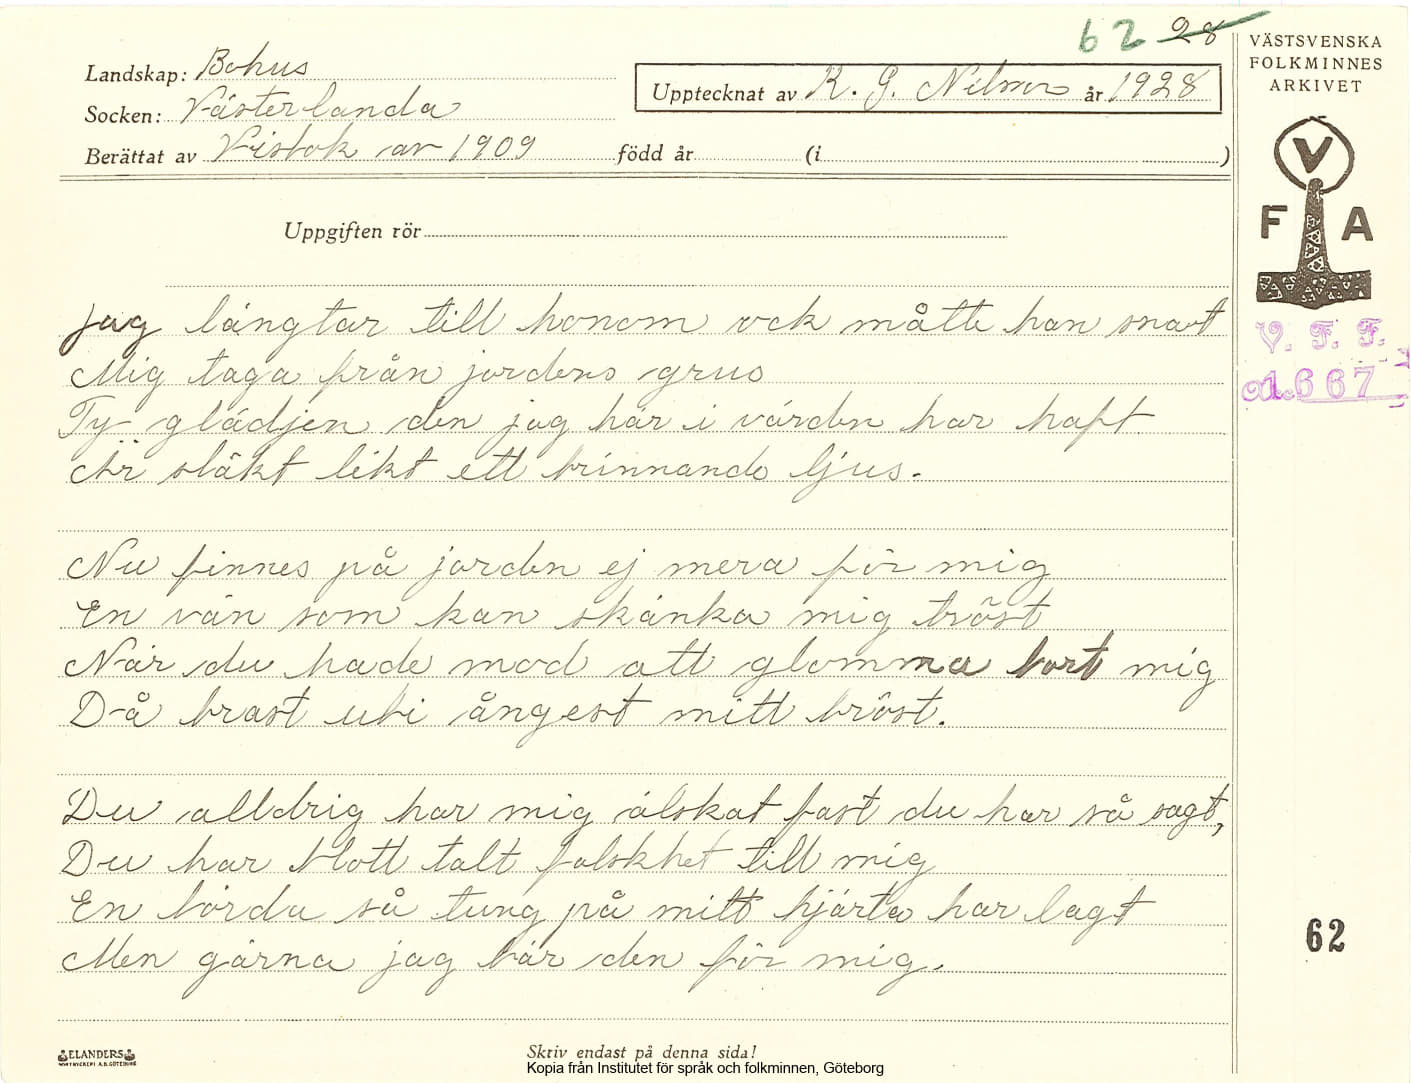 62 28
Landskap: Bohus
Socken: Västerlanda
Berättat av Visbok av 1909 född år (i )
Upptecknat av K. G. Nilsson år 1928
VÄSTSVENSKA
FOLKMINNES
ARKIVET
V
F A
V. F. F.
1667
Uppgiften rör
Jag längtar till honom ock måtte han snart
Mig taga från jordens grus
Ty glädjen den jag här i värden har haft
Är släkt likt ett brinnande ljus.
Nu finnes på jorden ej mera för mig
En vän som kan skänka mig tröst
När du hade mod att glömma bort mig
Då brast ubi ångest mitt bröst.
Du alldrig har mig älskat fast du har så sagt,
Du har blott talt falskhet till mig
En börda så tung på mitt hjärta har lagt
Men gärna jag bär den för mig.
62
ELANDERS
Skriv endast på denna sida!
Kopia från Institutet för språk och folkminnen, Göteborg